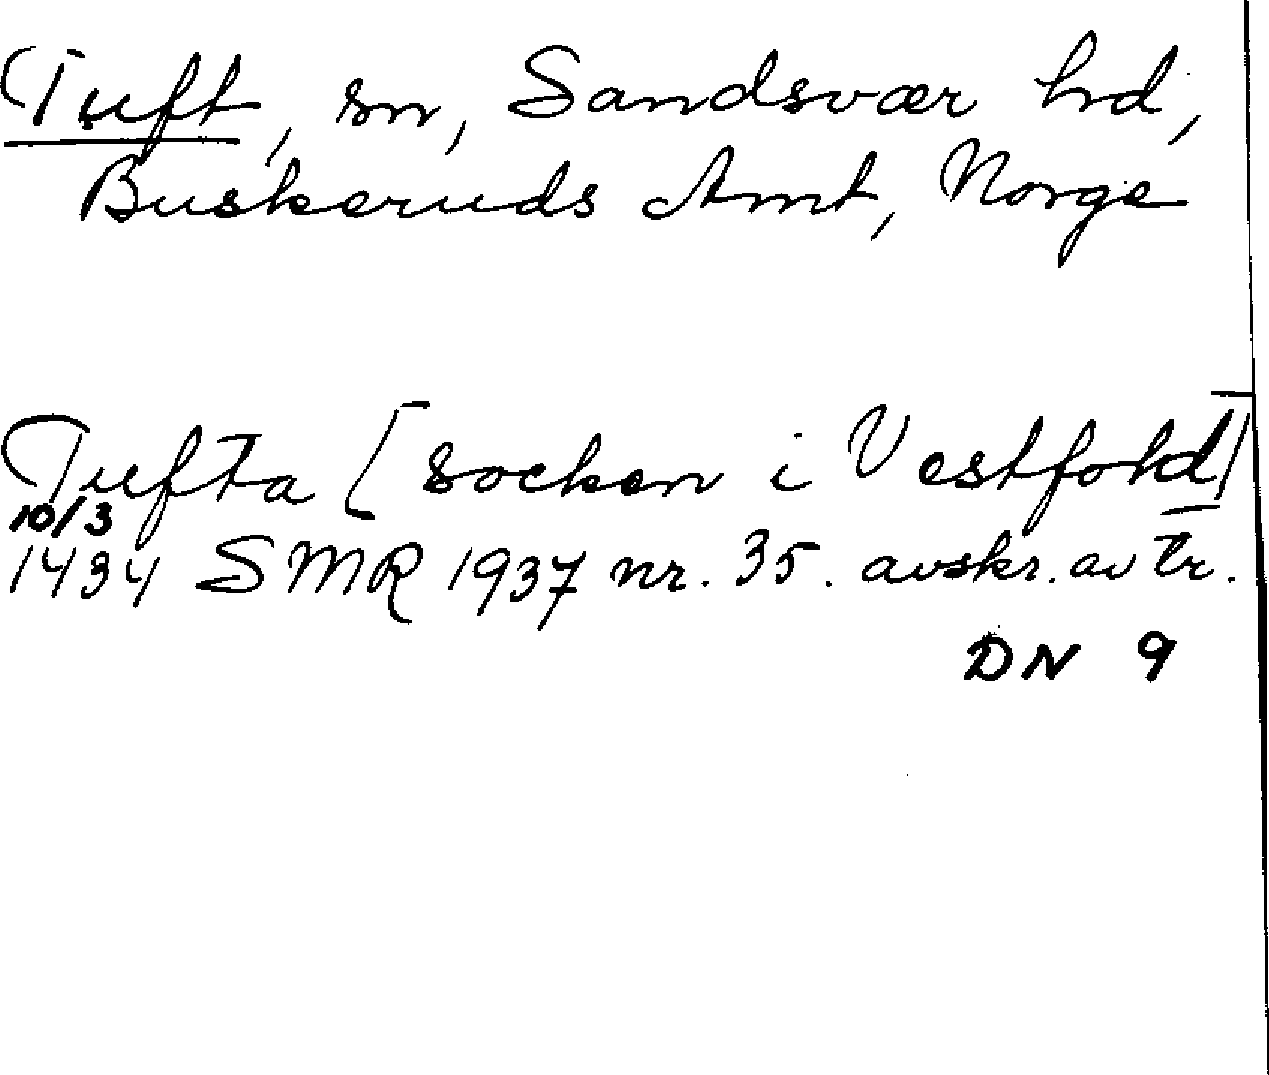 Tuft, sn, Sandsvær hd,
Buskeruds Amt, Norge
Tufta [socken i Vestfold]
10/3
1434 SMR 1937 nr. 35. avskr. av tr.
DN 9